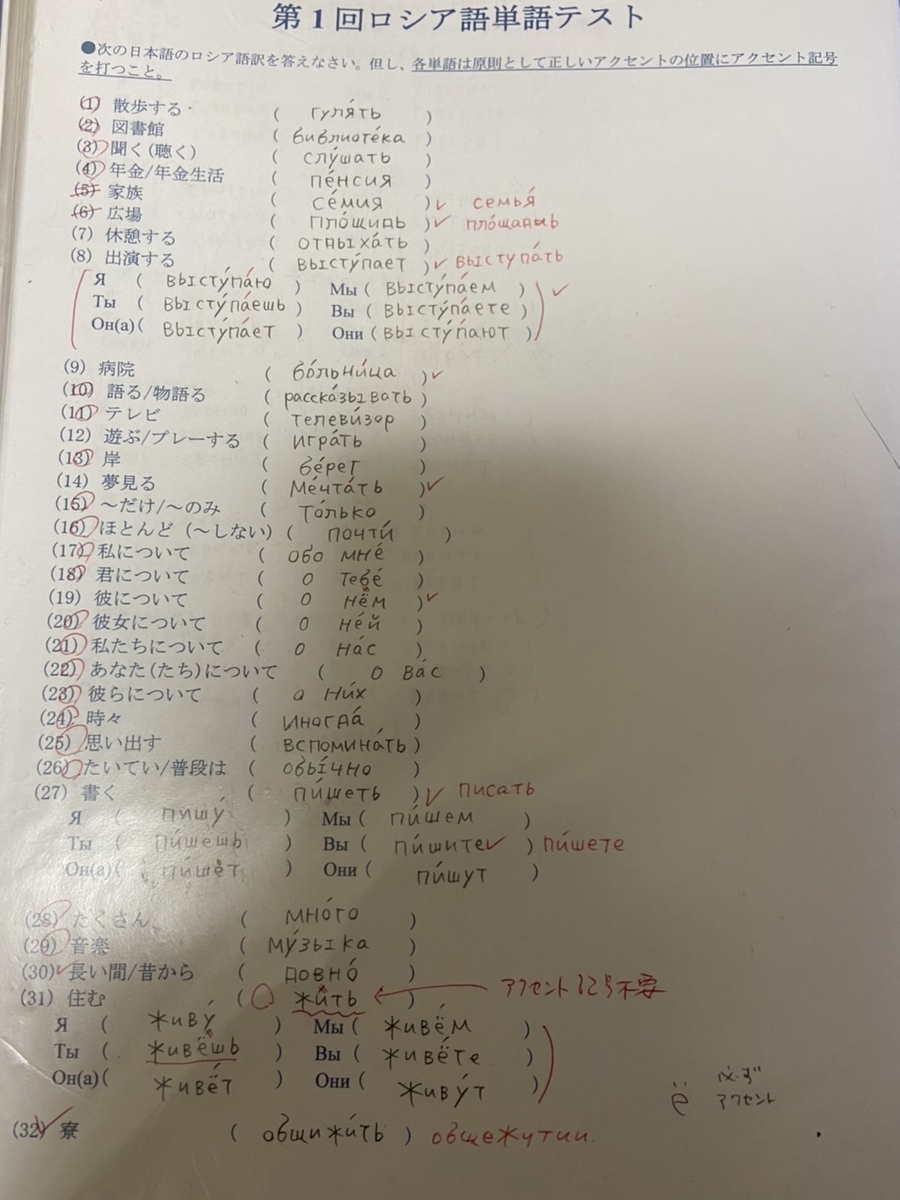 第1回ロシア語単語テスト
●次の日本語のロシア語訳を答えなさい。但し、各単語は原則として正しいアクセントの位置にアクセント記号
を打つこと。
(1) 散歩する ( гуля́ть )
(2) 図書館 ( библиоте́ка )
(3) 聞く(聴く) ( слу́шать )
(4) 年金/年金生活 ( пе́нсия )
(5) 家族 ( се́мия ) семья́
(6) 広場 ( пло́щидь ) пло́щадь
(7) 休憩する ( отдыха́ть )
(8) 出演する ( высту́пает ) выступа́ть
Я ( высту́па́ю ) Мы ( высту́па́ем )
Ты ( высту́па́ешь ) Вы ( высту́па́ете )
Он(а) ( высту́па́ет ) Они ( высту́па́ют )
(9) 病院 ( бо́льни́ца )
(10) 語る/物語る ( расска́зывать )
(11) テレビ ( телеви́зор )
(12) 遊ぶ/プレーする ( игра́ть )
(13) 岸 ( бе́рег )
(14) 夢見る ( ме́чта́ть )
(15) ～だけ/～のみ ( то́лько )
(16) ほとんど (～しない) ( почти́ )
(17) 私について ( обо мне́ )
(18) 君について ( о тебе́ )
(19) 彼について ( о нём )
(20) 彼女について ( о не́й )
(21) 私たちについて ( о на́с )
(22) あなた(たち)について ( о ва́с )
(23) 彼らについて ( о ни́х )
(24) 時々 ( иногда́ )
(25) 思い出す ( вспомина́ть )
(26) たいてい/普段は ( обы́чно )
(27) 書く ( пи́шеть ) писать
Я ( пишу́ ) Мы ( пи́шем )
Ты ( пи́шешь ) Вы ( пи́шите ) пи́шете
Он(а) ( пи́шет ) Они ( пи́шут )
(28) たくさん ( мно́го )
(29) 音楽 ( му́зыка )
(30) 長い間/昔から ( довно́ )
(31) 住む ( жи́ть ) アクセント記号不要
Я ( живу́ ) Мы ( живём )
Ты ( живёшь ) Вы ( живёте )
Он(а) ( живёт ) Они ( живу́т )
ё 必ず
アクセント
(32) 寮 ( общижи́ть ) общежутии.